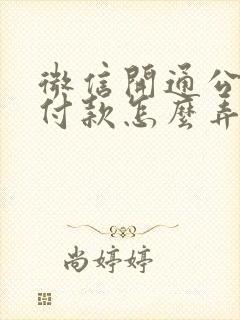 微信開通公
付款怎麼弄
尚婷婷